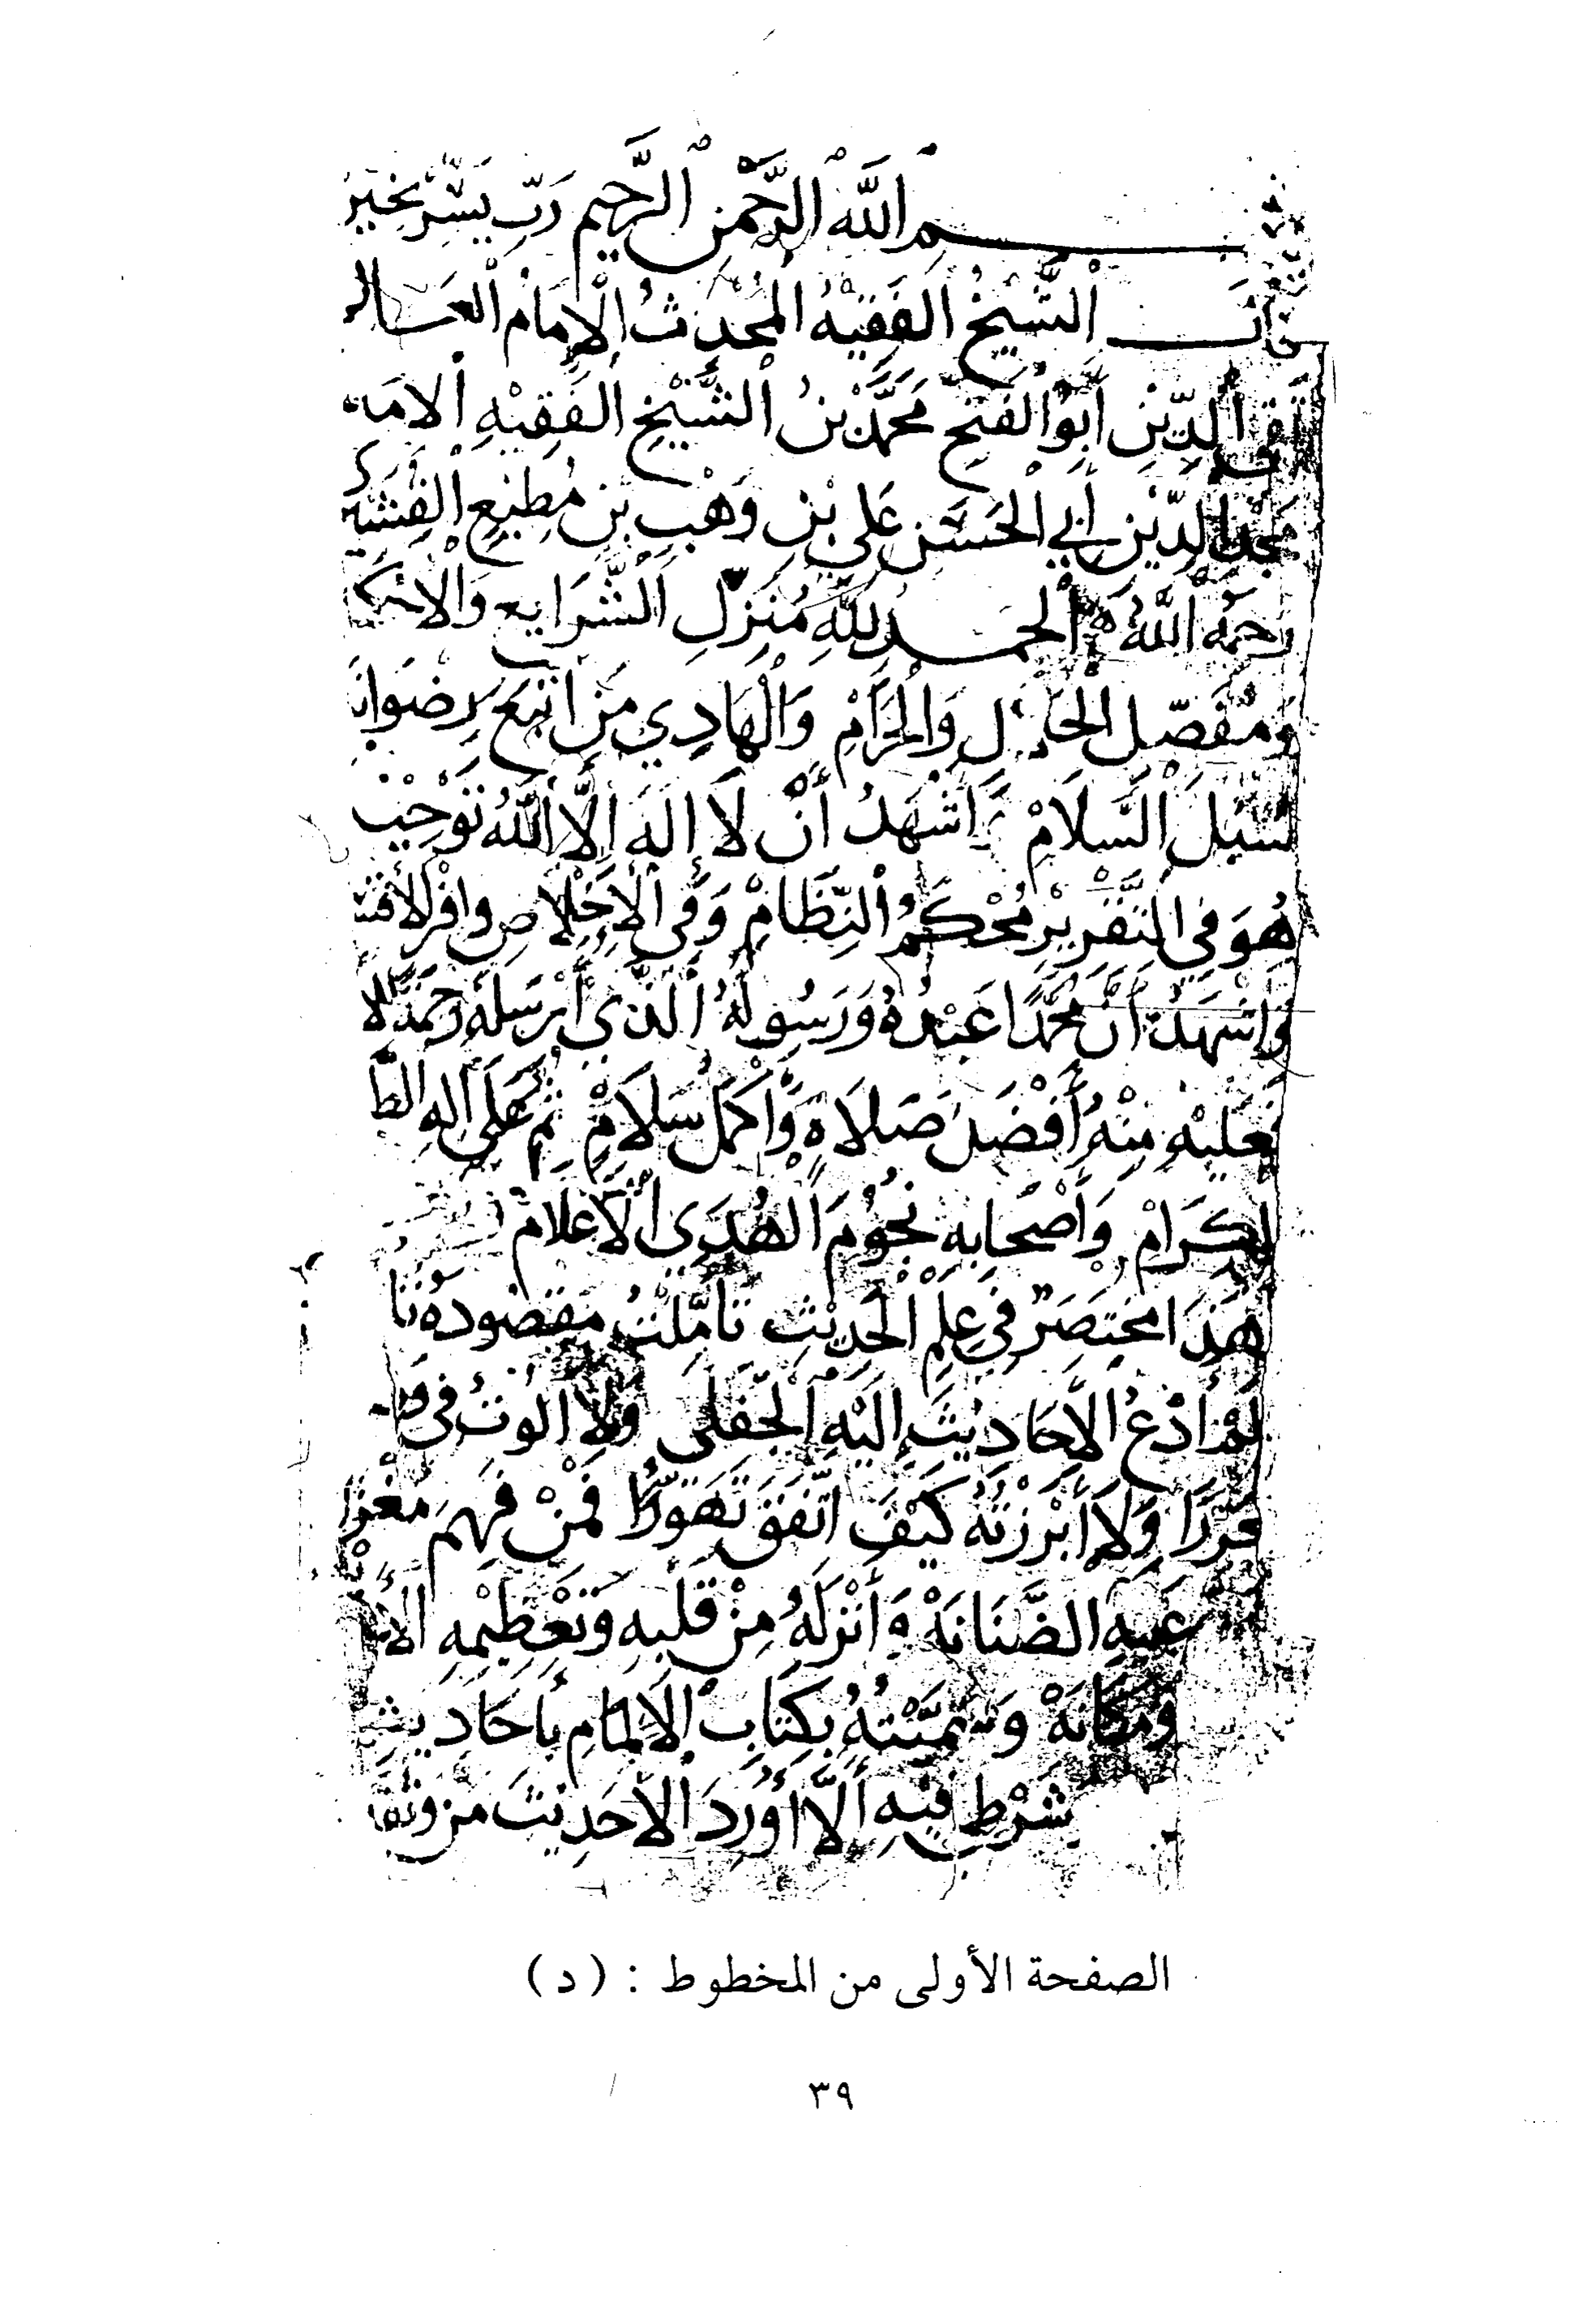 بِسْمِ اللَّهِ الرَّحْمَنِ الرَّحِيمِ رَبِّ يَسِّرْ بِخَيْر
قَالَ الشَّيْخُ الفَقِيْهُ المُحَدِثُ الْإِمَامُ العَالِم
تَقِيُّ الدِّيْنِ أَبُو الْفَتْحِ مُحَمَّدْ بْنُ الشَّيْخِ الفَقِيْهِ الامَا
مَجْدِ الدِّيْنِ أَبِي الْحَسَنِ عَلِي بْنِ وَهْبِ بْنِ مُطِيْعِ الْقُشَيْ
رَحِمَهُ اللَّهُ الْحَمْدُ لِلَّهِ مُنَزِّلِ الشَّرَايِعِ وَالْاحْكَا
وَمُفَصِّلِ الْحَلَالِ وَالْحَرَامْ وَالْهَادِي مَنِ اتَّبَعَ رِضْوَانَ
سُبُلَ السَّلَامْ وَاشْهَدُ أَنْ لَا إِلَهَ إِلَّا اللَّهُ تَوْحِيْد
هُوَ فِي التَقْرِيْرِ مُحْكَمُ النِّظَامْ وَفِي الْإِخْلَاصِ وَافِرُ الْأَقْسَ
وَاشْهَدُ أَنَّ مُحَمَّدًا عَبْدُهُ وَرَسُولُهُ الَّذِي أَرْسَلَهُ رَحْمَةً لَلا
فَعَلَيْهِ مِنْهُ أَفْضَلُ صَلَاةٍ وَأَكْمَلُ سَلَامْ ثُمَّ عَلَى آلِهِ الط
الكِرَامْ وَأَصْحَابِهِ نُجُوْمِ الْهُدَى الْأَعْلَامْ
هَذَا مُخْتَصَرٌ فِي عِلْمِ الْحَدِيْثِ تَأَمَّلْتُ مَقْصُودَهُ تَا
لَمْ أَدْعُ الْأَحَادِيْثَ إِلَيْهِ الْجَفَلَى وَلَا الَوْتُ فِي وَ
مُحَرَّرًا وَلَا أَبْرَزْتُهُ كَيْفَ اتَّفَقَ تَهَوُّرًا فَمَنْ فَهِمَ مَغْزَا
عَلَيْهِ الضَّنَانَهْ وَأَنْزَلَهُ مِنْ قَلْبِهِ وَتَعْظِيْمِهِ الأَ
وَمَكَانَهْ وَسَمَّيْتُهُ بِكِتَابِ الْالْمَامِ بِأَحَادِيثِ
شَرْطِي فِيْهِ أَلَّا أُوْرِدَ الْاحَدِيْثَ مَن وَثَّقَ
الصفحة الأولى من المخطوط : ( د )
٣٩